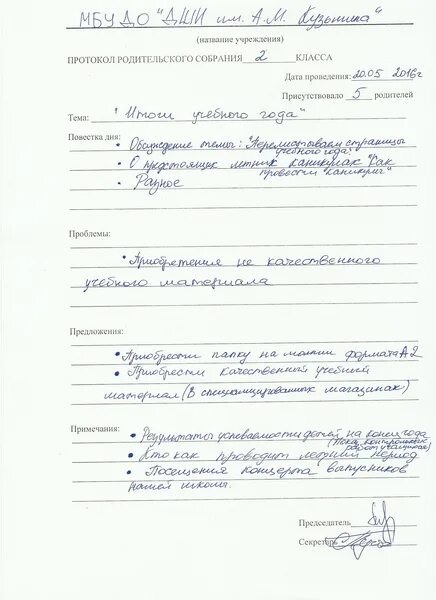 МБУ ДО "ДШИ им. А.М. Кузьмина"
(название учреждения)
ПРОТОКОЛ РОДИТЕЛЬСКОГО СОБРАНИЯ 2 КЛАССА
Дата проведения: 20.05 2016 г
Присутствовало 5 родителей
Тема: "Итоги учебного года"
Повестка дня:
• Обсуждение темы: "Перелистываем страницы
учебного года"
• О предстоящих летних каникулах "Как
провести каникулы"
• Разное
Проблемы:
• Приобретения не качественного
учебного материала
Предложения:
• Приобрести папку на молнии формата А2
• Приобрести качественный учебный
материал (В специализированных магазинах)
Примечания:
• Результаты успеваемости детей на конец года
(Показ контрольных
работ учащихся)
• Кто как проводит летний период
• Посещения концерта выпускников
нашей школы.
Председатель
Секретарь